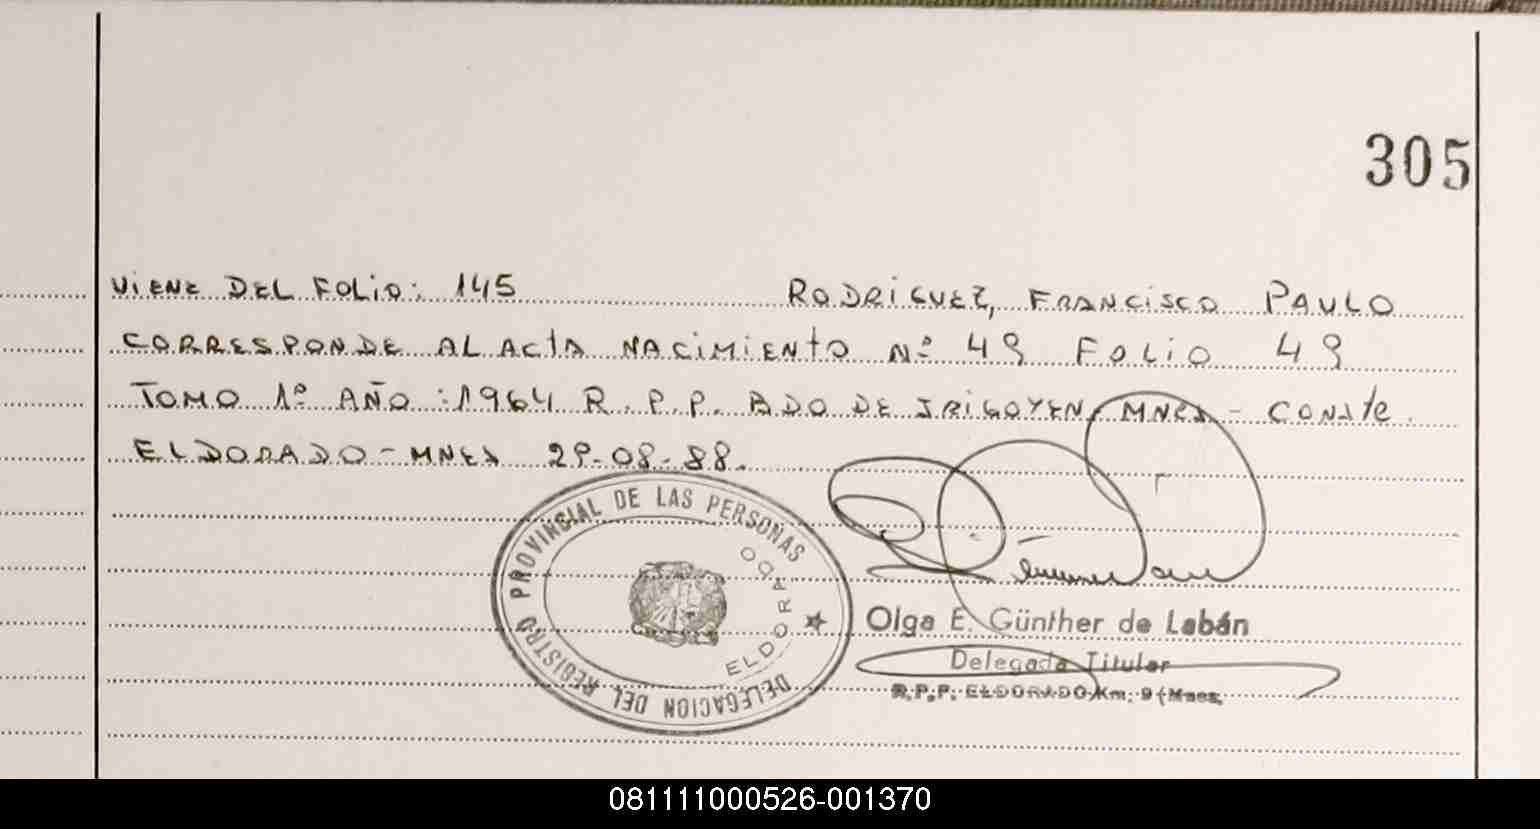 305
VIENE DEL FOLIO: 145 RODRIGUEZ, FRANCISCO PAULO
CORRESPONDE AL ACTA NACIMIENTO Nº 49 FOLIO 49
TOMO 1º AÑO: 1964 R.P.P. BDO DE IRIGOYEN, MNES - CONSTE.
ELDORADO - MNES 29-08-88.
DELEGACION DEL REGISTRO PROVINCIAL DE LAS PERSONAS
ELDORADO
Olga E. Günther de Labán
Delegada Titular
R.P.P. ELDORADO Km. 9 (Mnes.
081111000526-001370